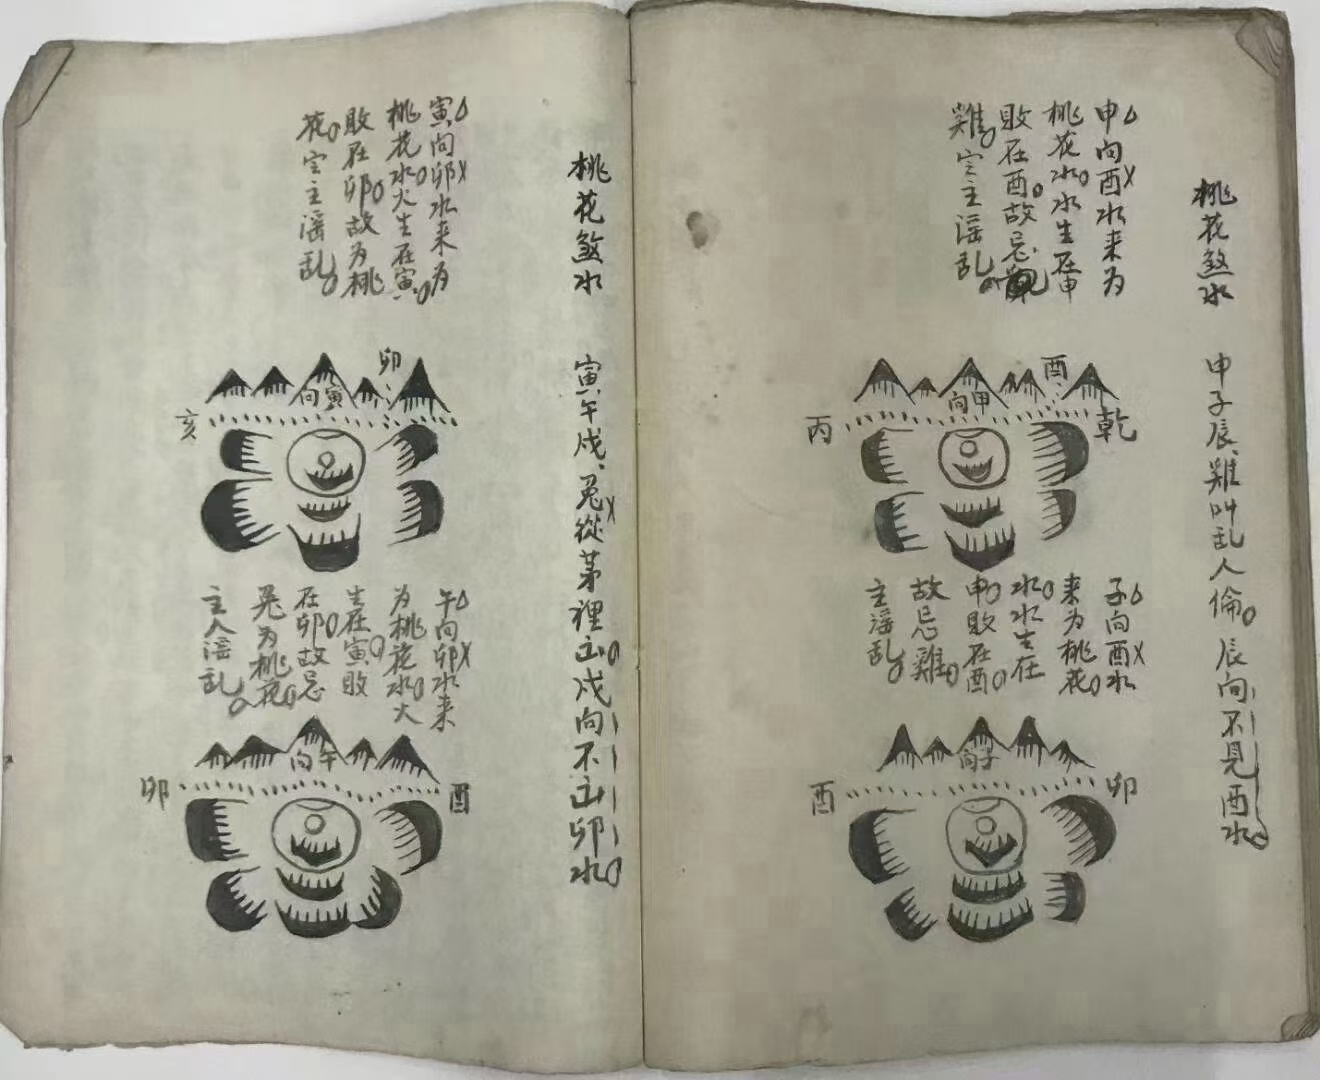 桃花煞水
申子辰雞叫乱人倫辰向不見酉水
申向酉水来为
桃花水水生在申
敗在酉故忌
雞定主滛乱
酉
申向
丙
乾
子向酉水
来为桃花
水水生在
申敗在酉
故忌雞
主滛乱
子向
酉
卯
桃花煞水
寅午戌兎從茅裡出戌向不出卯水
寅向卯水来为
桃花水火生在寅
敗在卯故为桃
花定主滛乱
卯
寅向
亥
午向卯水来
为桃花水火
生在寅敗
在卯故忌
兎为桃花
主人滛乱
午向
卯
酉